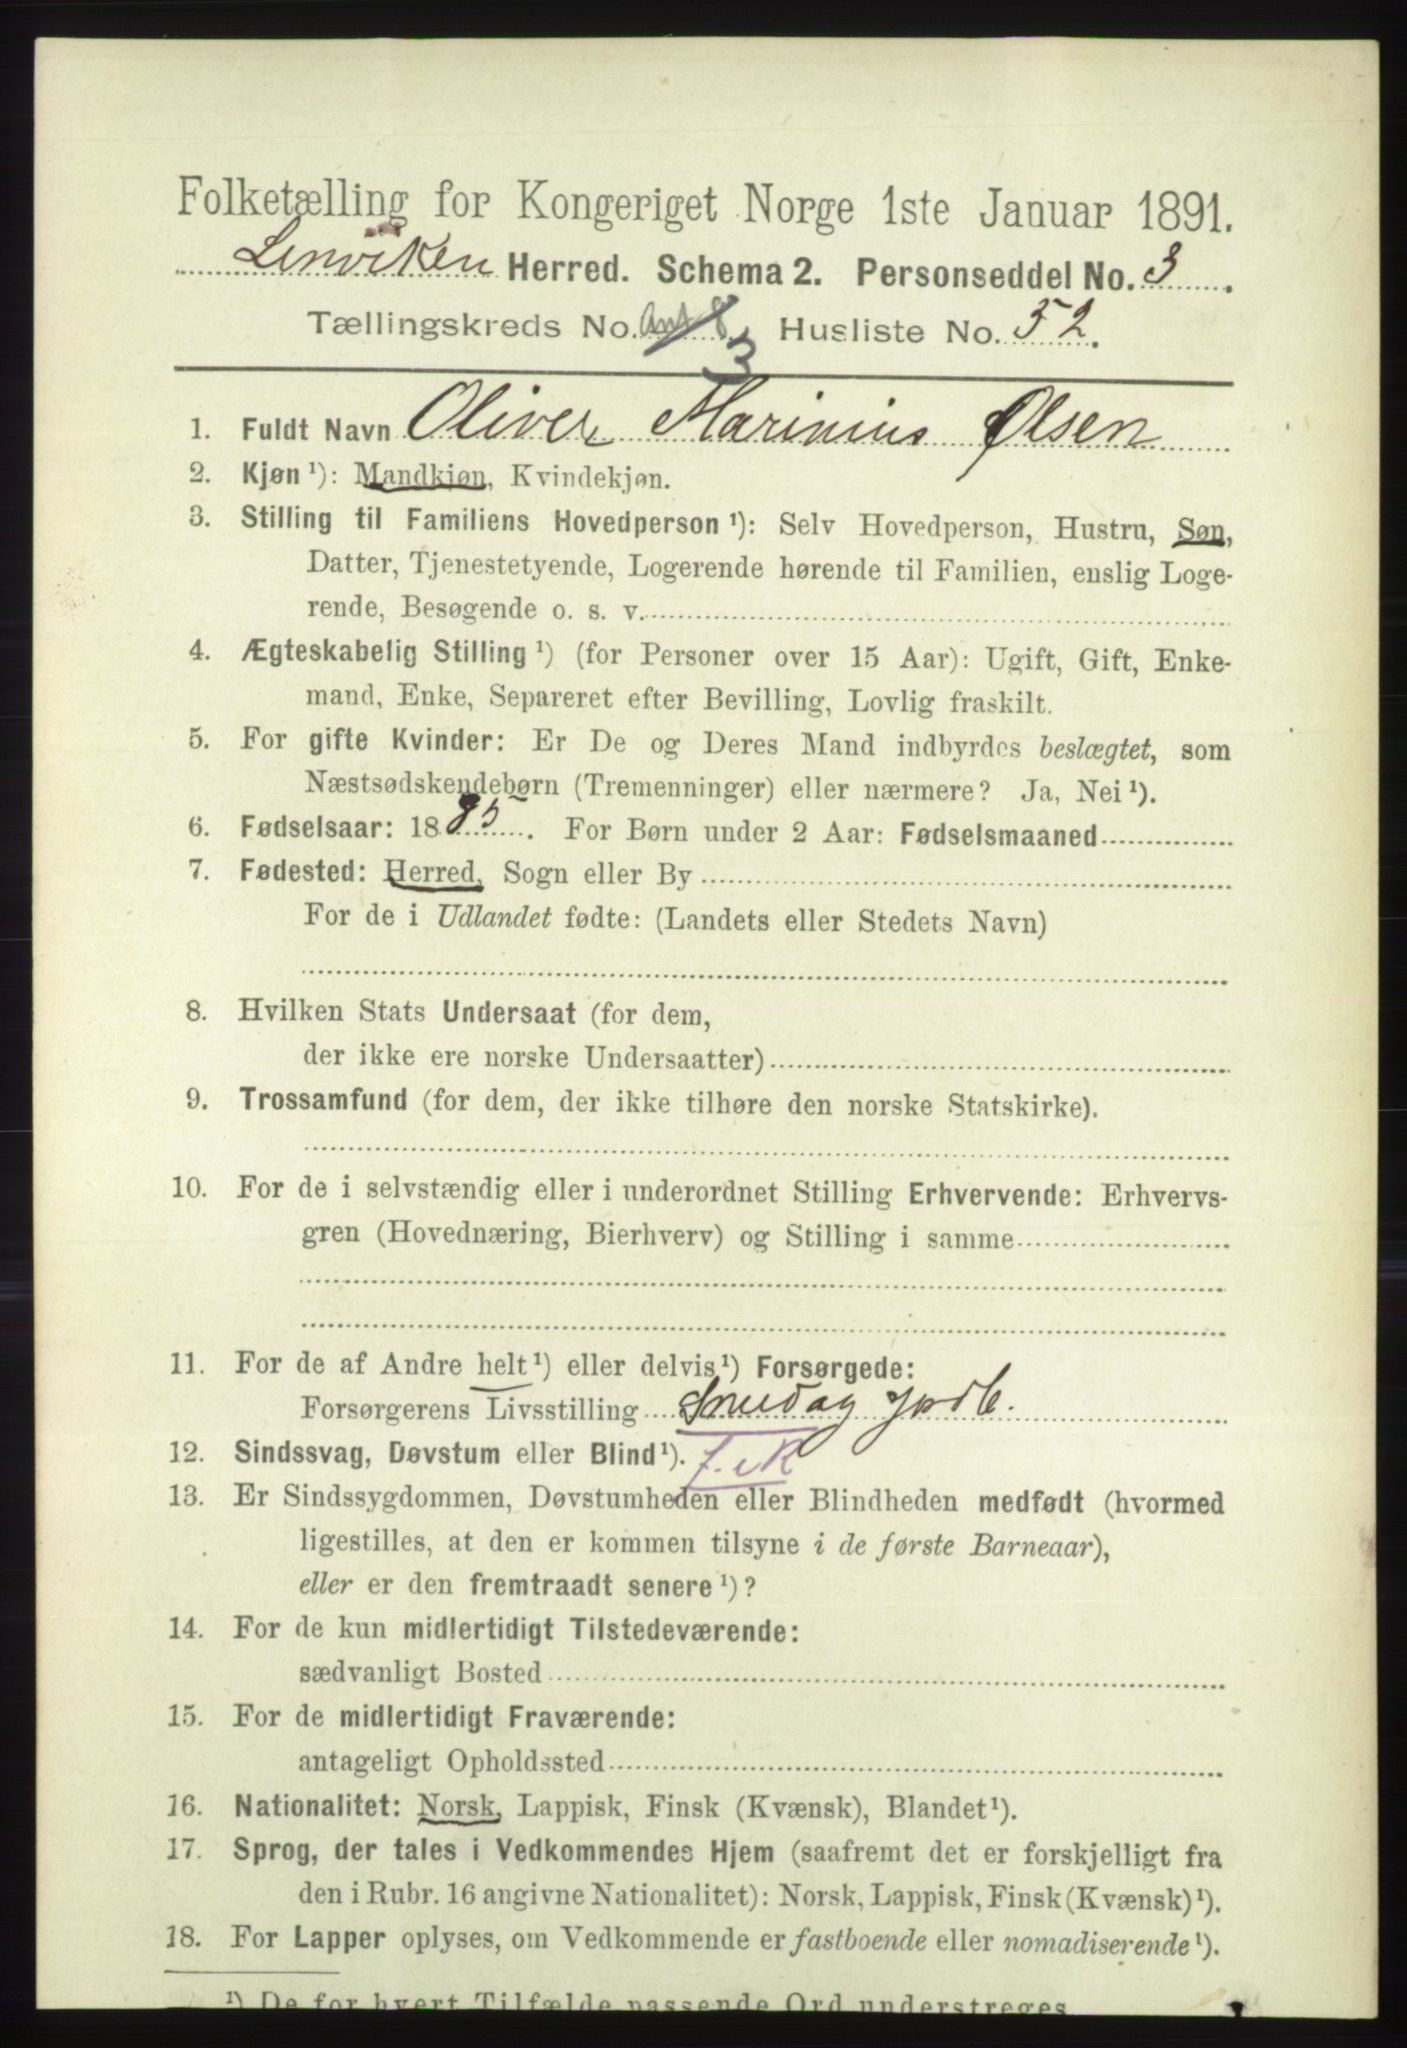 Folketælling for Kongeriget Norge 1ste Januar 1891.
Lenviken Herred. Schema 2. Personseddel No. 3.
Tællingskreds No. 3 Husliste No. 52.
1. Fuldt Navn Oliver Marinius Olsen
2. Kjøn ¹): Mandkjøn, Kvindekjøn.
3. Stilling til Familiens Hovedperson ¹): Selv Hovedperson, Hustru, Søn,
Datter, Tjenestetyende, Logerende hørende til Familien, enslig Loge-
rende, Besøgende o. s. v.
4. Ægteskabelig Stilling ¹) (for Personer over 15 Aar): Ugift, Gift, Enke-
mand, Enke, Separeret efter Bevilling, Lovlig fraskilt.
5. For gifte Kvinder: Er De og Deres Mand indbyrdes beslægtet, som
Næstsødskendebørn (Tremenninger) eller nærmere? Ja, Nei ¹).
6. Fødselsaar: 1885. For Børn under 2 Aar: Fødselsmaaned
7. Fødested: Herred, Sogn eller By
For de i Udlandet fødte: (Landets eller Stedets Navn)
8. Hvilken Stats Undersaat (for dem,
der ikke ere norske Undersaatter)
9. Trossamfund (for dem, der ikke tilhøre den norske Statskirke).
10. For de i selvstændig eller i underordnet Stilling Erhvervende: Erhvervs-
gren (Hovednæring, Bierhverv) og Stilling i samme
11. For de af Andre helt ¹) eller delvis ¹) Forsørgede:
Forsørgerens Livsstilling Smed og
12. Sindssvag, Døvstum eller Blind ¹).
13. Er Sindssygdommen, Døvstumheden eller Blindheden medfødt (hvormed
ligestilles, at den er kommen tilsyne i de første Barneaar),
eller er den fremtraadt senere ¹)?
14. For de kun midlertidigt Tilstedeværende:
sædvanligt Bosted
15. For de midlertidigt Fraværende:
antageligt Opholdssted
16. Nationalitet: Norsk, Lappisk, Finsk (Kvænsk), Blandet ¹).
17. Sprog, der tales i Vedkommendes Hjem (saafremt det er forskjelligt fra
den i Rubr. 16 angivne Nationalitet): Norsk, Lappisk, Finsk (Kvænsk) ¹).
18. For Lapper oplyses, om Vedkommende er fastboende eller nomadiserende ¹).
¹) De for hvert Tilfælde passende Ord understreges.